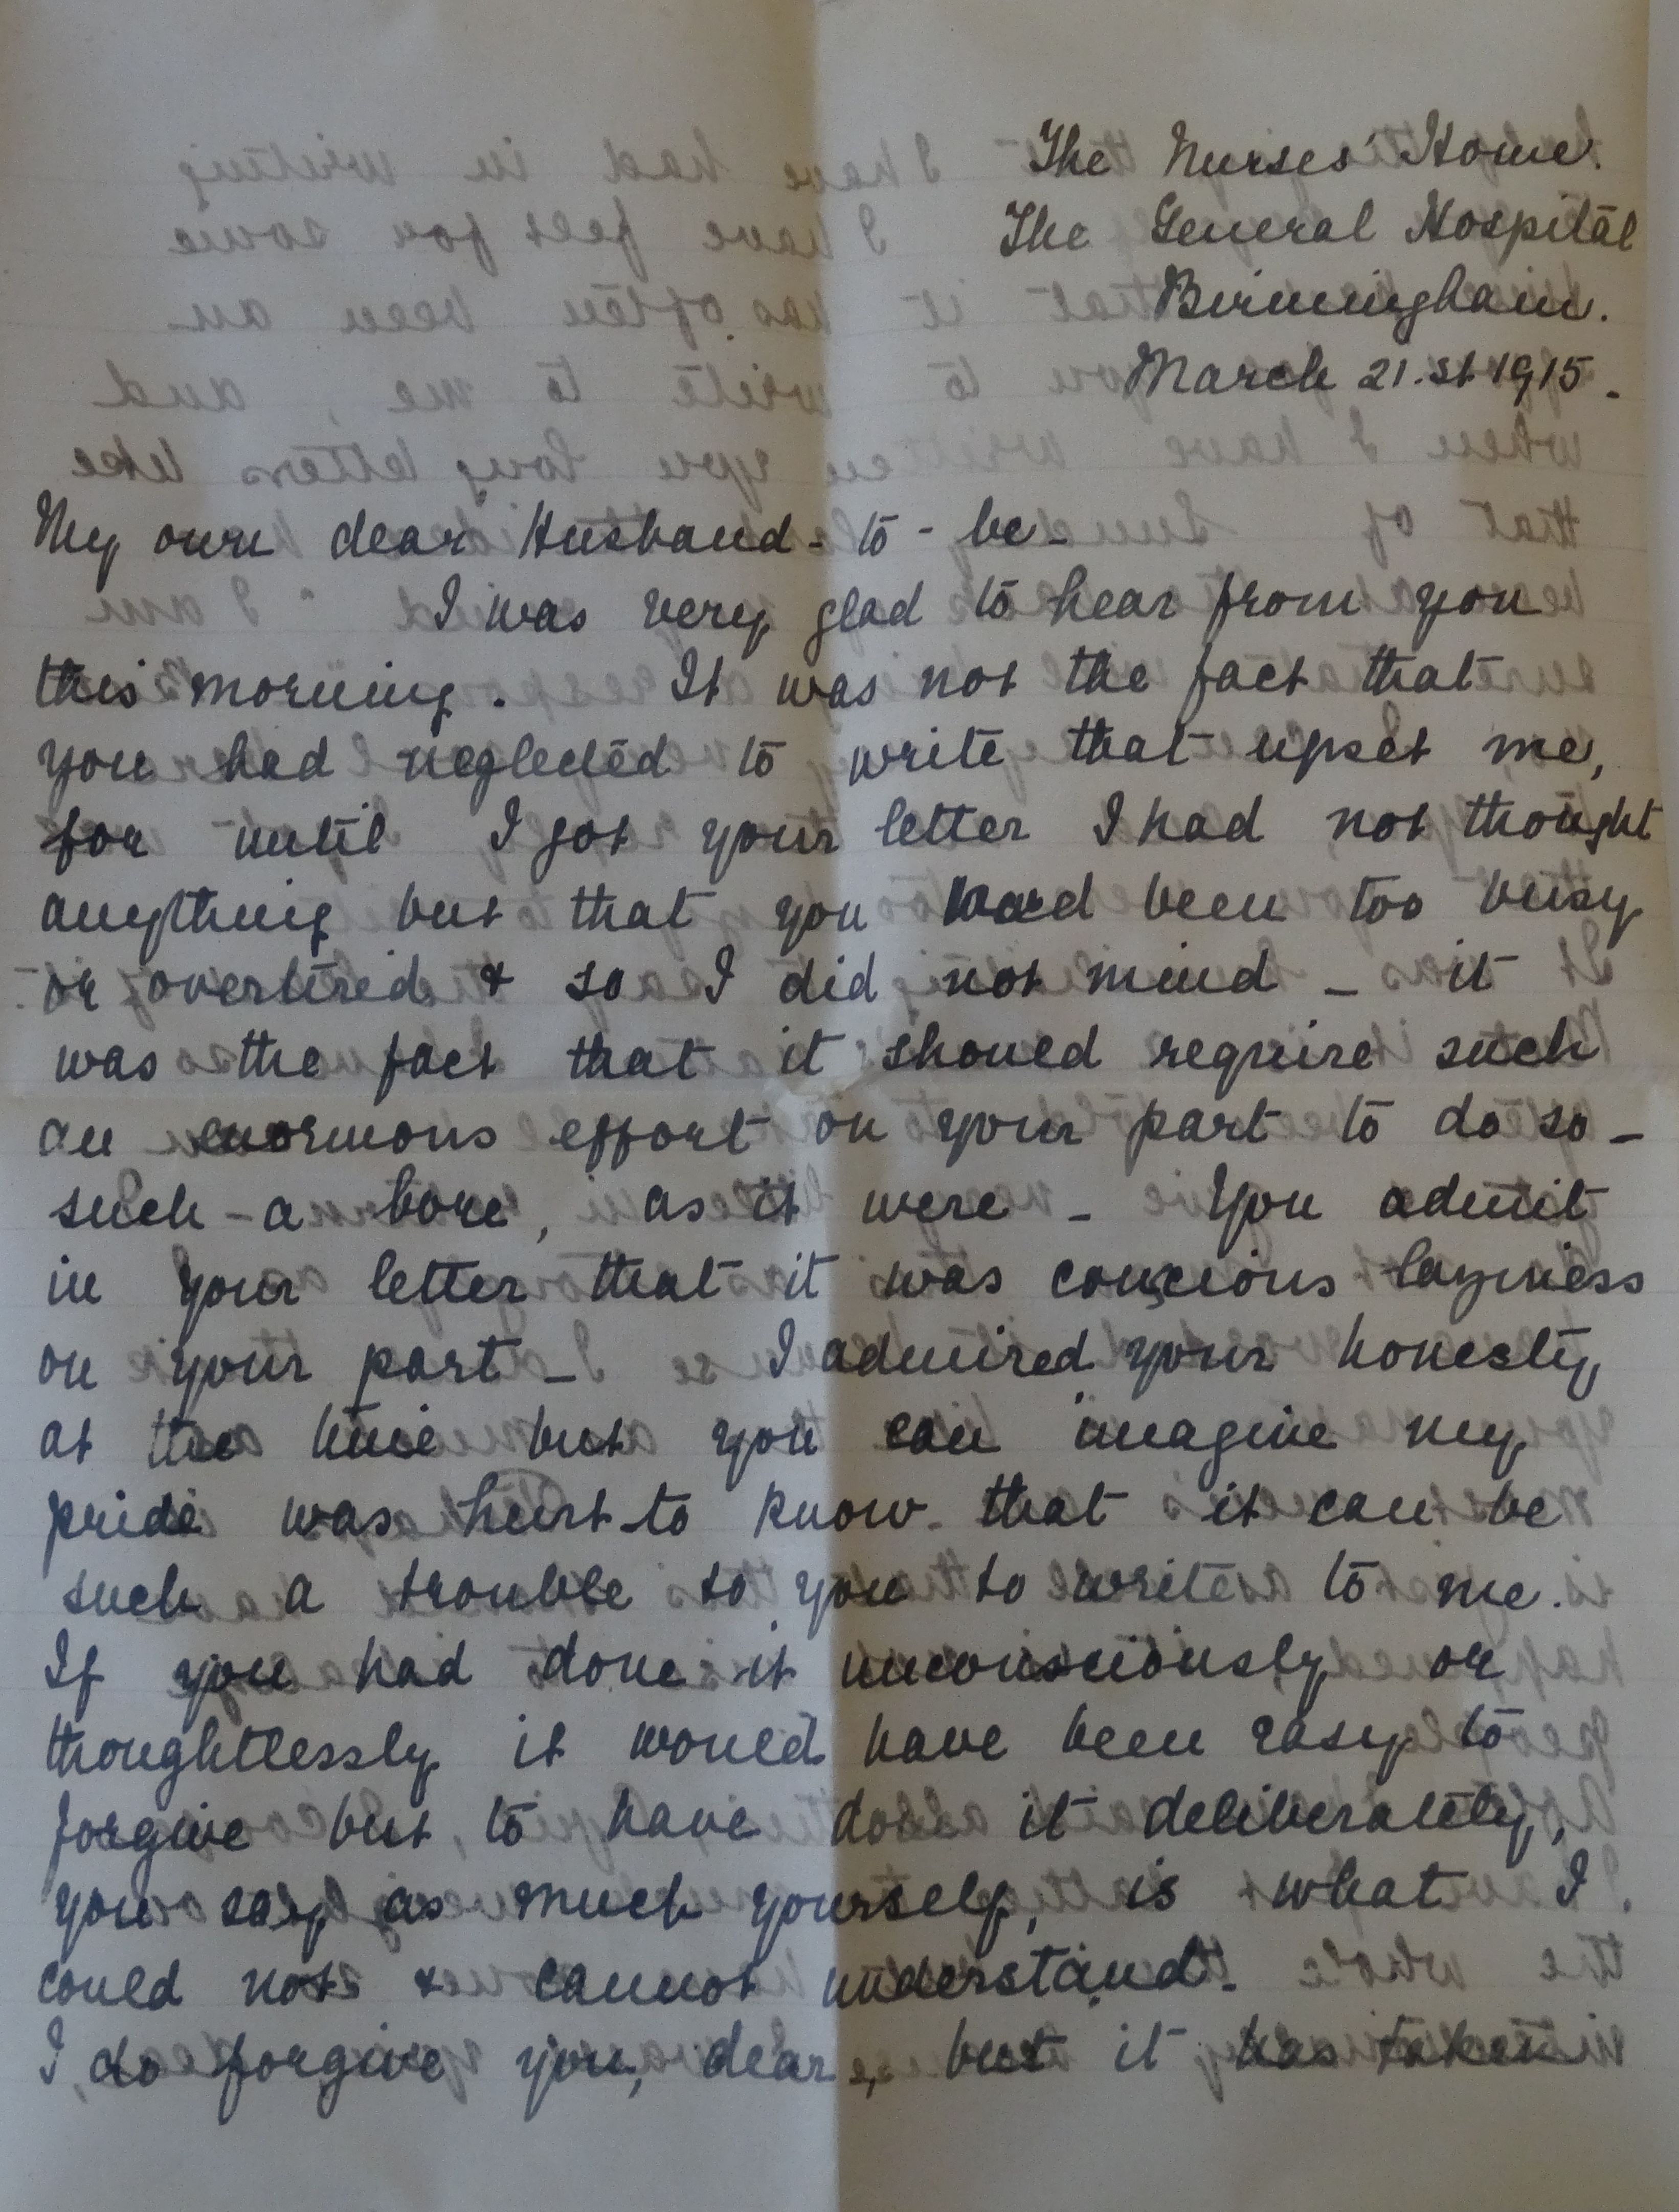 The Nurses' Home.
The General Hospital
Birmingham.
March 21.st 1915.
My own dear Husband-to-be-
I was very glad to hear from you
this morning. It was not the fact that
you had neglected to write that upset me,
for until I got your letter I had not thought
anything but that you had been too busy
or overtired & so I did not mind - it
was the fact that it should require such
an enormous effort on your part to do so -
such a bore, as it were - You admit
in your letter that it was conscious laziness
on your part - I admired your honesty
at the time but you can imagine my
pride was hurt to know that it can be
such a trouble to you to write to me.
If you had done it unconsciously or
thoughtlessly it would have been easy to
forgive but to have done it deliberately,
you say as much yourself, is what I
could not & cannot understand.
I do forgive you, dear, but it has taken